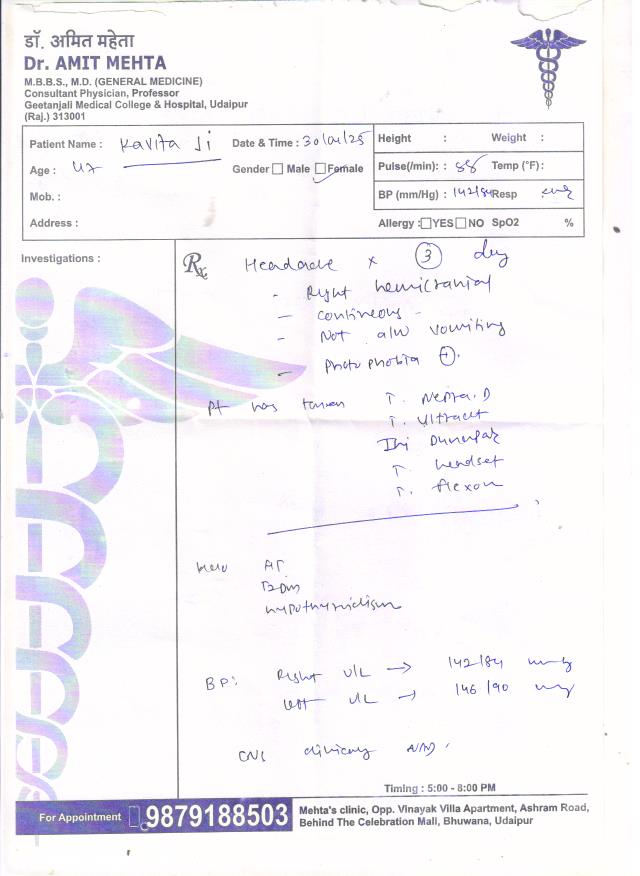 डॉ. अमित महेता
Dr. AMIT MEHTA
M.B.B.S., M.D. (GENERAL MEDICINE)
Consultant Physician, Professor
Geetanjali Medical College & Hospital, Udaipur
(Raj.) 313001
Patient Name : Kavita Ji Date & Time : 30/04/25 Height : Weight :
Age : 47 Gender Male Female Pulse(/min): : 88 Temp (°F):
Mob. : BP (mm/Hg) : 142/84 Resp
Address : Allergy : YES NO SpO2 %
Investigations :
Rx Headache x 3 day
- Right hemicranial
- contineous -
- Not a/w vomiting
- Photophobia +.
Pt has taken T. Nepra.D
T. Ultracet
Inj Dynapar
T. headset
T. flexon
AT
T2DM
hypothyroidism
BP: Right U/L → 142/84 mmHg
left U/L → 146/90 mmHg
CNS clinically NAD
Timing : 5:00 - 8:00 PM
For Appointment 9879188503 Mehta's clinic, Opp. Vinayak Villa Apartment, Ashram Road,
Behind The Celebration Mall, Bhuwana, Udaipur